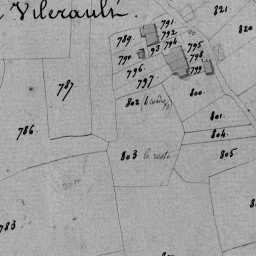 Vilerault.
821
791
820
792
789.
93
794
795
790
798
796.
799
797
787
800.
802
801.
786.
804.
803 le reste
805
783